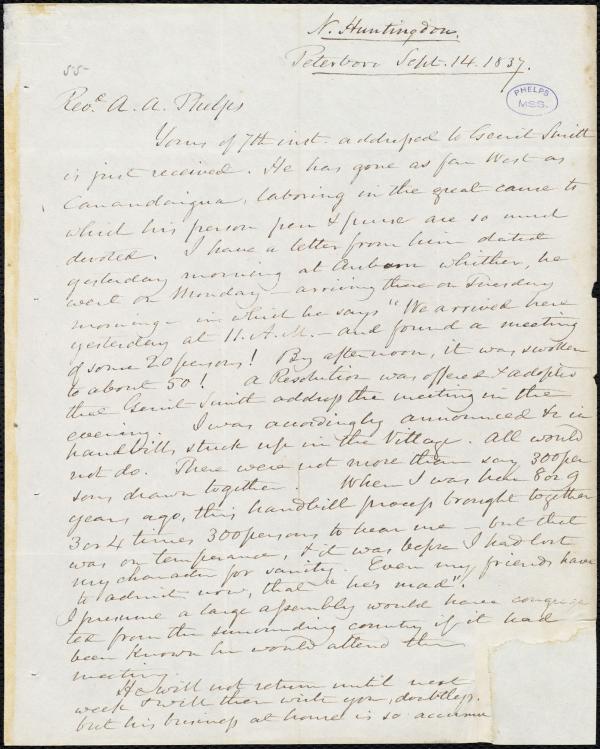 N. Huntingdon.
Peterboro Sept. 14. 1837.
55
PHELPS
MSS.
Revd. A. A. Phelps
Yours of 7th inst. addressed to Gerrit Smith
is just received. He has gone as far West as
Canandaigua, laboring in the great cause to
which his person pen & purse are so much
devoted. I have a letter from him dated
yesterday morning at Auburn whither, he
went on Monday - arriving there on Tuesday
morning - in which he says "We arrived here
yesterday at 11. A.M. - and found a meeting
of some 20 persons! By afternoon, it was swollen
to about 50! a Resolution was offered & adopted
that Gerrit Smith address the meeting in the
evening. I was accordingly announced &c in
handbills stuck up in the Village. All would
not do. There were not more than say 300 per
sons drawn together. When I was here 8 or 9
years ago, this handbill process brought together
3 or 4 times 300 persons to hear me - but that
was on temperance, & it was before I had lost
my character for sanity. Even my friends have
to admit now, that "he's mad".
I presume a large assembly would have congrega
ted from the surrounding country if it had
been known he would attend the
meeting.
He will not return until next
week & will then write you, doubtless.
but his business at home is so accumu